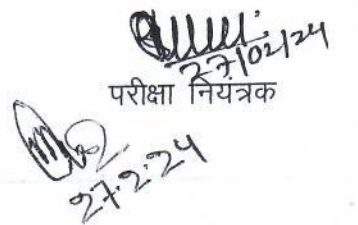 27/02/24
परीक्षा नियंत्रक
27.2.24